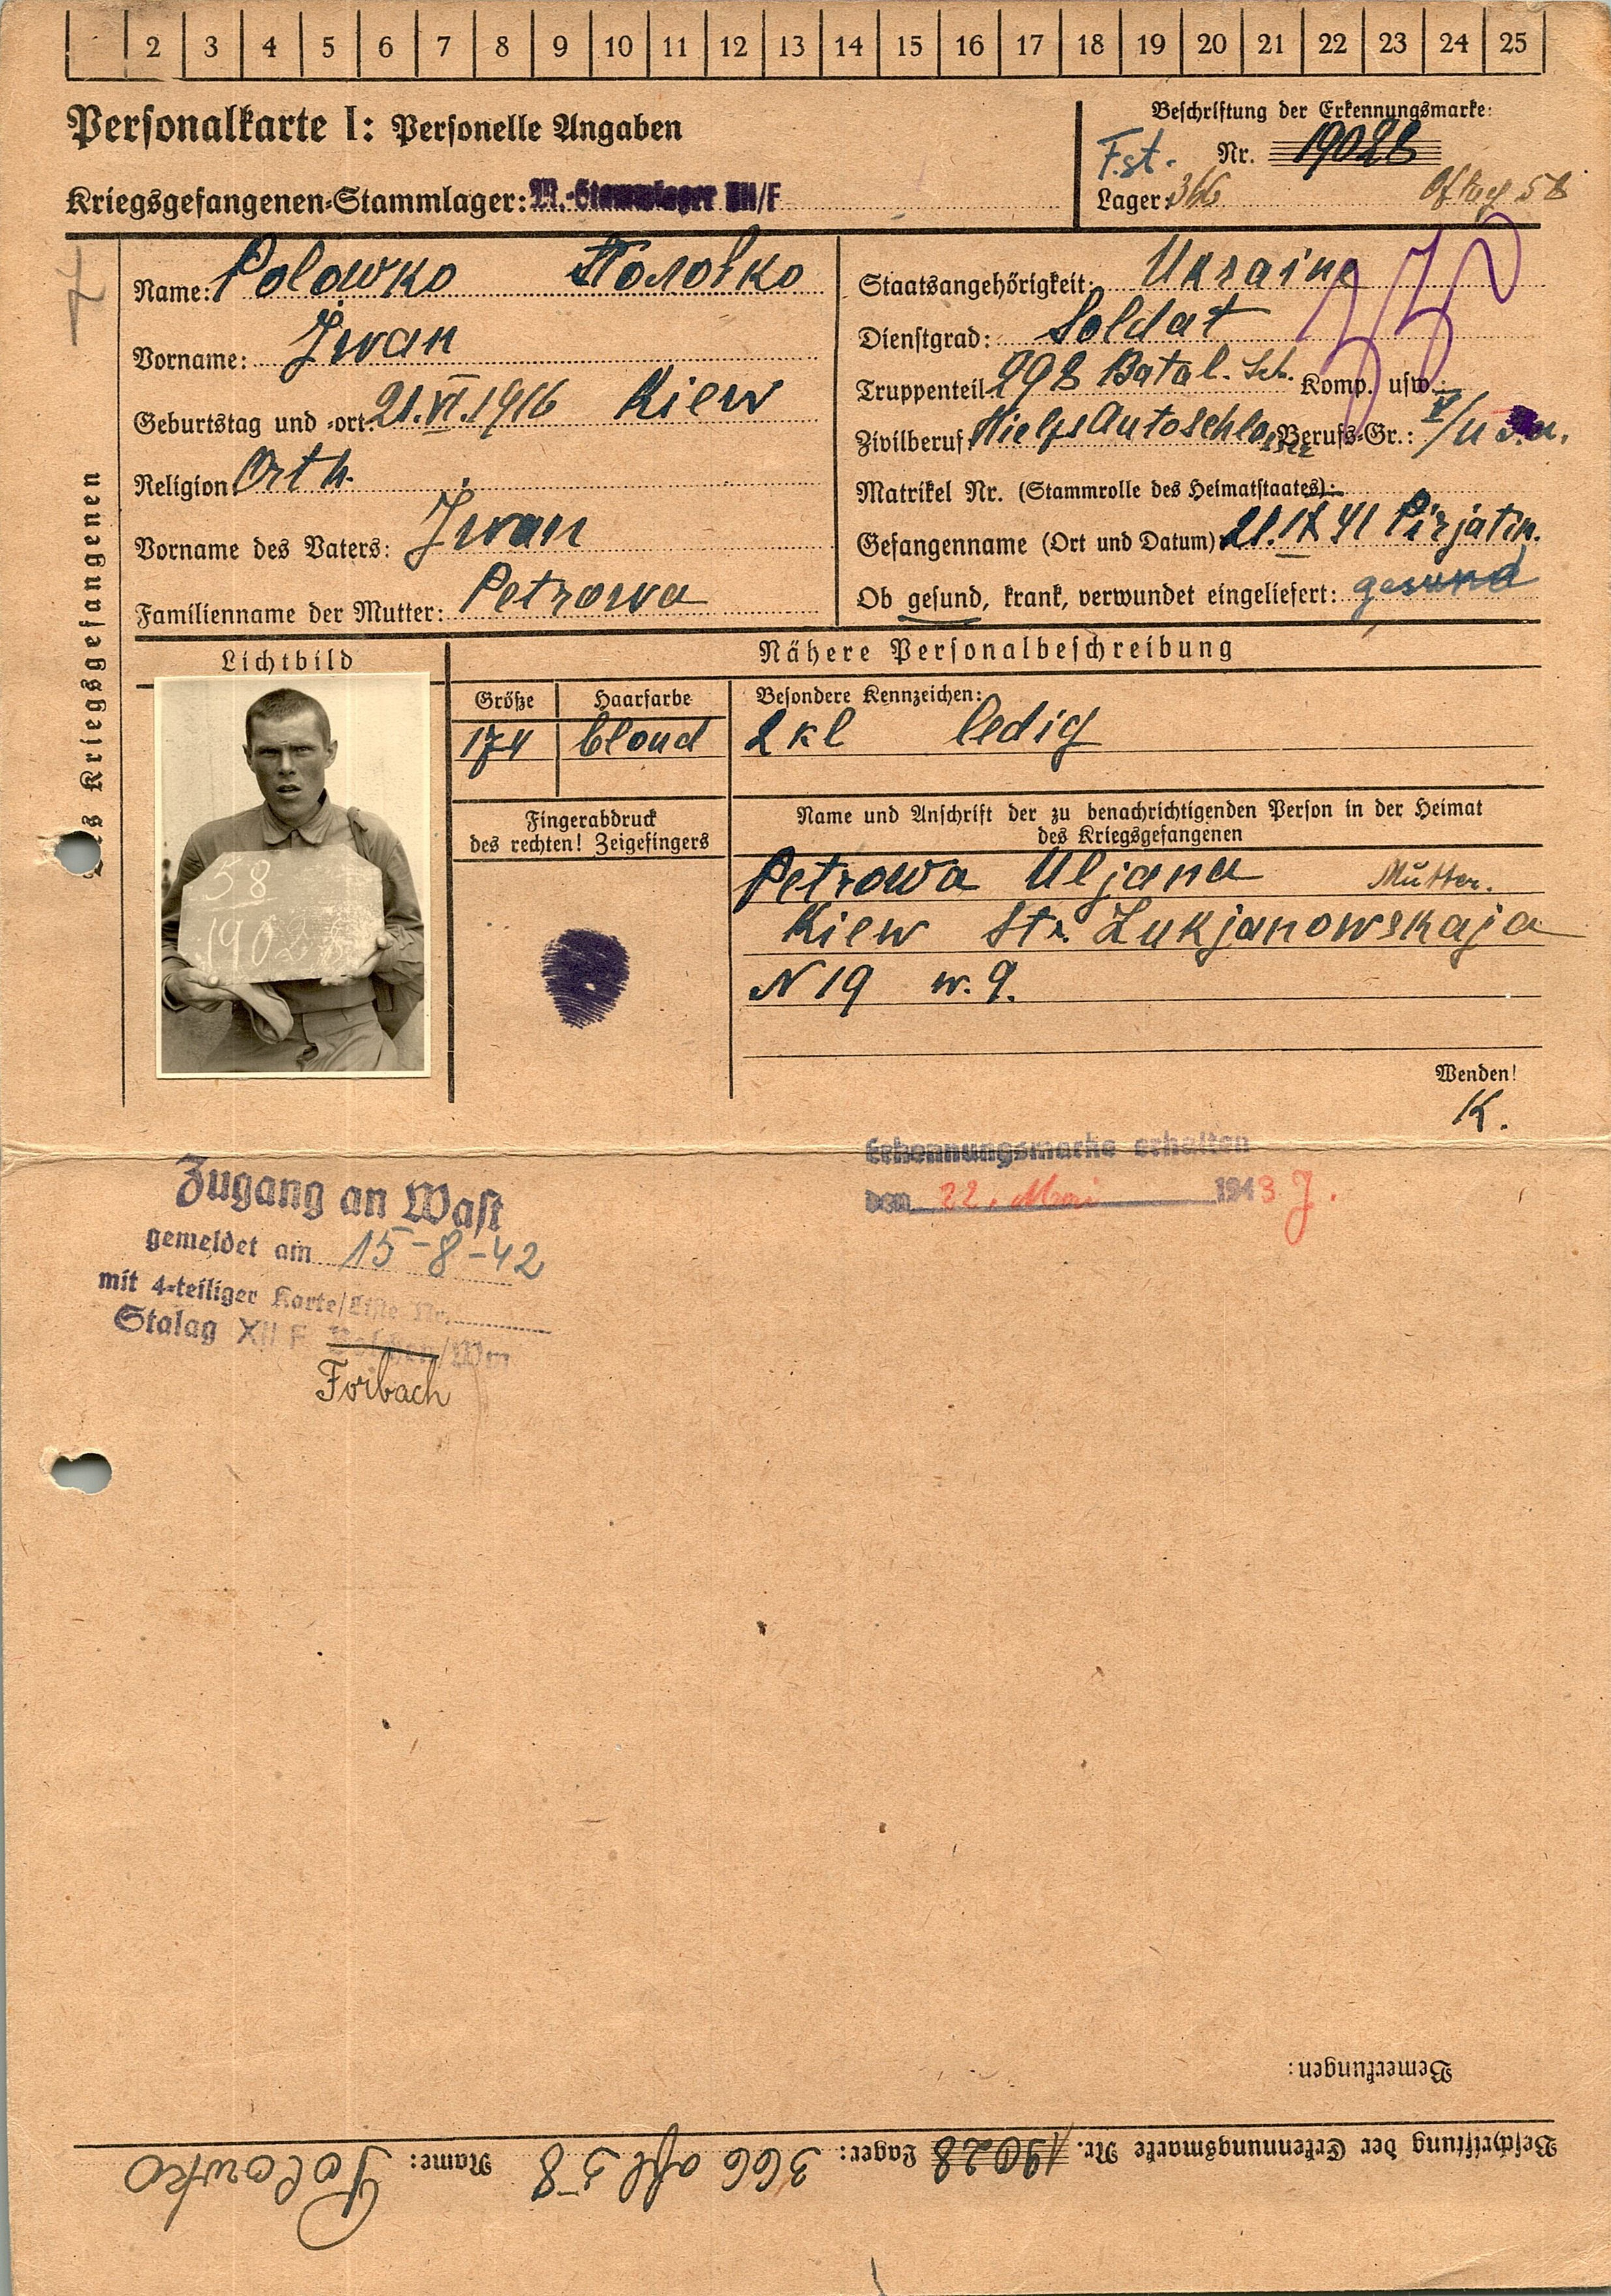 2 3 4 5 6 7 8 9 10 11 12 13 14 15 16 17 18 19 20 21 22 23 24 25
Personalkarte I: Personelle Angaben
Beschriftung der Erkennungsmarke:
Fst. Nr. 19028
Kriegsgefangenen-Stammlager: M.-Stammlager XII/F
Lager: 366 Oflag 58
74
Des Kriegsgefangenen
Name: Polowko Половко
Vorname: Jwan
Geburtstag und -ort: 21.VI.1916 Kiew
Religion: Orth.
Vorname des Vaters: Jwan
Familienname der Mutter: Petrowa
Staatsangehörigkeit: Ukraine
Dienstgrad: Soldat
Truppenteil: 298 Batal. Sch. Komp. usw.:
Zivilberuf: Hielfs Autoschlosser Berufs-Gr.: V/11
Matrikel Nr. (Stammrolle des Heimatstaates):
Gefangennahme (Ort und Datum): 21.IX 41 Pirjatin.
Ob gesund, krank, verwundet eingeliefert: gesund
Lichtbild
58
19028
Nähere Personalbeschreibung
Größe Haarfarbe Besondere Kennzeichen:
174 blond 2 kl ledig
Fingerabdruck
des rechten! Zeigefingers
Name und Anschrift der zu benachrichtigenden Person in der Heimat
des Kriegsgefangenen
Petrowa Uljana Mutter.
Kiew Str. Lukjanowskaja
N 19 w. 9.
Wenden!
K.
Erkennungsmarke erhalten
den 22. Mai 1943 J.
Zugang an Wast
gemeldet am 15-8-42
mit 4-teiliger Karte/Liste Nr.
Stalag XII F Bolchen/Wm
Forbach
Bemerkungen:
Beschriftung der Erkennungsmarke Nr. 19028 Lager: 366 ofl 58 Name: Polowko